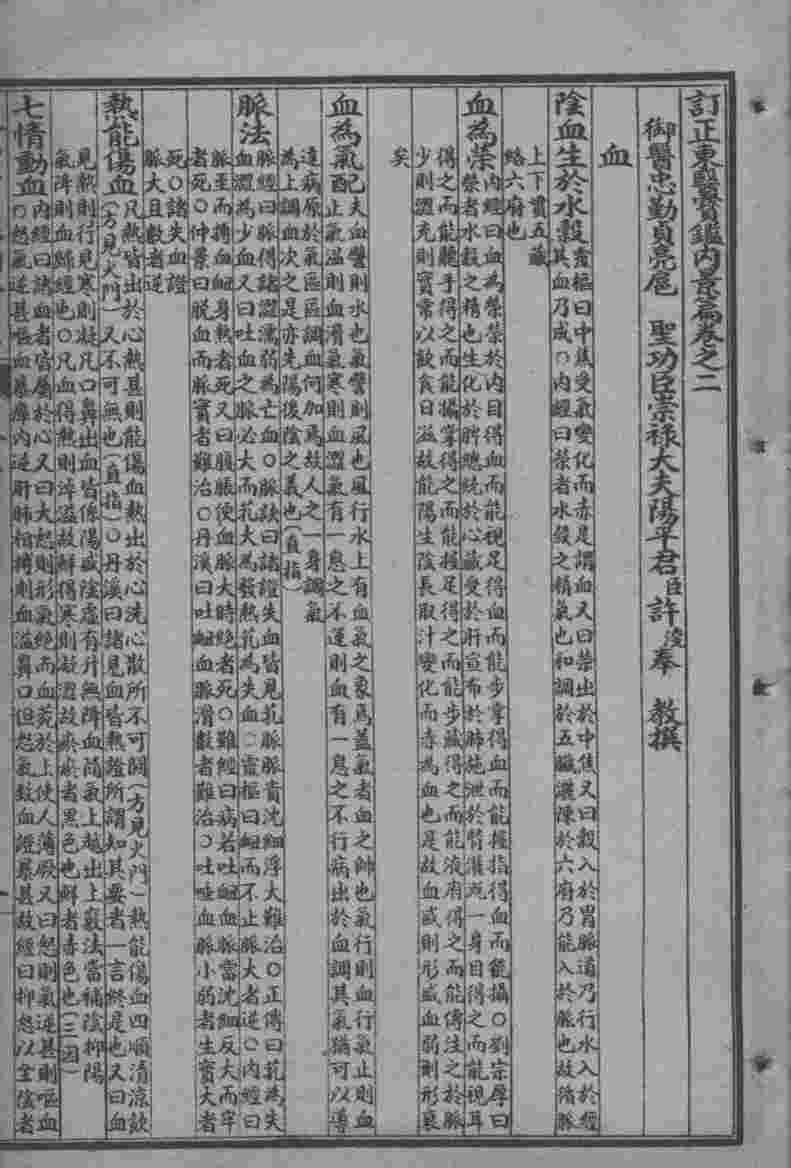 訂正東醫寶鑑內景篇卷之二
御醫忠勤貞亮扈 聖功臣崇祿大夫陽平君臣許浚奉 教撰
血
陰血生於水穀
靈樞曰中焦受氣變化而赤是謂血又曰榮出於中焦又曰穀入於胃脈道乃行水入於經
其血乃成○內經曰榮者水穀之精氣也和調於五臟灑陳於六府乃能入於脈也故循脈
上下貫五藏
絡六府也
血為榮
內經曰血為榮榮於內目得血而能視足得血而能步掌得血而能握指得血而能攝○劉宗厚曰
榮者水穀之精也生化於脾總統於心藏受於肝宣布於肺施泄於腎灌漑一身目得之而能視耳
得之而能聽手得之而能攝掌得之而能握足得之而能步藏得之而能液府得之而能傳注之於脈
少則澀充則實常以飲食日滋故能陽生陰長取汁變化而赤為血也是故血盛則形盛血弱則形衰
矣
血為氣配
夫血譬則水也氣譬則風也風行水上有血氣之象焉盖氣者血之帥也氣行則血行氣止則血
止氣溫則血滑氣寒則血澀氣有一息之不運則血有一息之不行病出於血調其氣猶可以導
達病原於氣區區調血何加焉故人之一身調氣
為上調血次之是亦先陽後陰之義也(直指)
脈法
脈經曰脈得諸澀濡弱為亡血○脈訣曰諸證失血皆見芤脈脈貴沈細浮大難治○正傳曰芤為失
血澀為少血又曰吐血之脈必大而芤大為發熱芤為失血○靈樞曰衄而不止脈大者逆○內經曰
脈至而搏血衄身熱者死又曰腹脹便血脈大時絶者死○難經曰病若吐衄血脈當沈細反大而牢
者死○仲景曰脫血而脈實者難治○丹溪曰吐衄血脈滑數者難治○吐唾血脈小弱者生實大者
死○諸失血證
脈大且數者逆
熱能傷血
凡熱皆出於心熱甚則能傷血熱出於心洗心散所不可闕(方見火門)熱能傷血四順清涼飲
(方見火門)又不可無也(直指)○丹溪曰諸見血皆熱證所謂知其要者一言終是也又曰血
見熱則行見寒則凝凡口鼻出血皆係陽盛陰虛有升無降血隨氣上越出上竅法當補陰抑陽
氣降則血歸經也○凡血得熱則淖溢故鮮得寒則凝澀故瘀瘀者黑色也鮮者赤色也(三因)
七情動血
內經曰諸血者皆屬於心又曰大怒則形氣絶而血菀於上使人薄厥又曰怒則氣逆甚則嘔血
○怒氣逆甚嘔血暴癉內逆肝肺相搏則血溢鼻口但怒氣致血證暴甚故經曰抑怒以全陰者